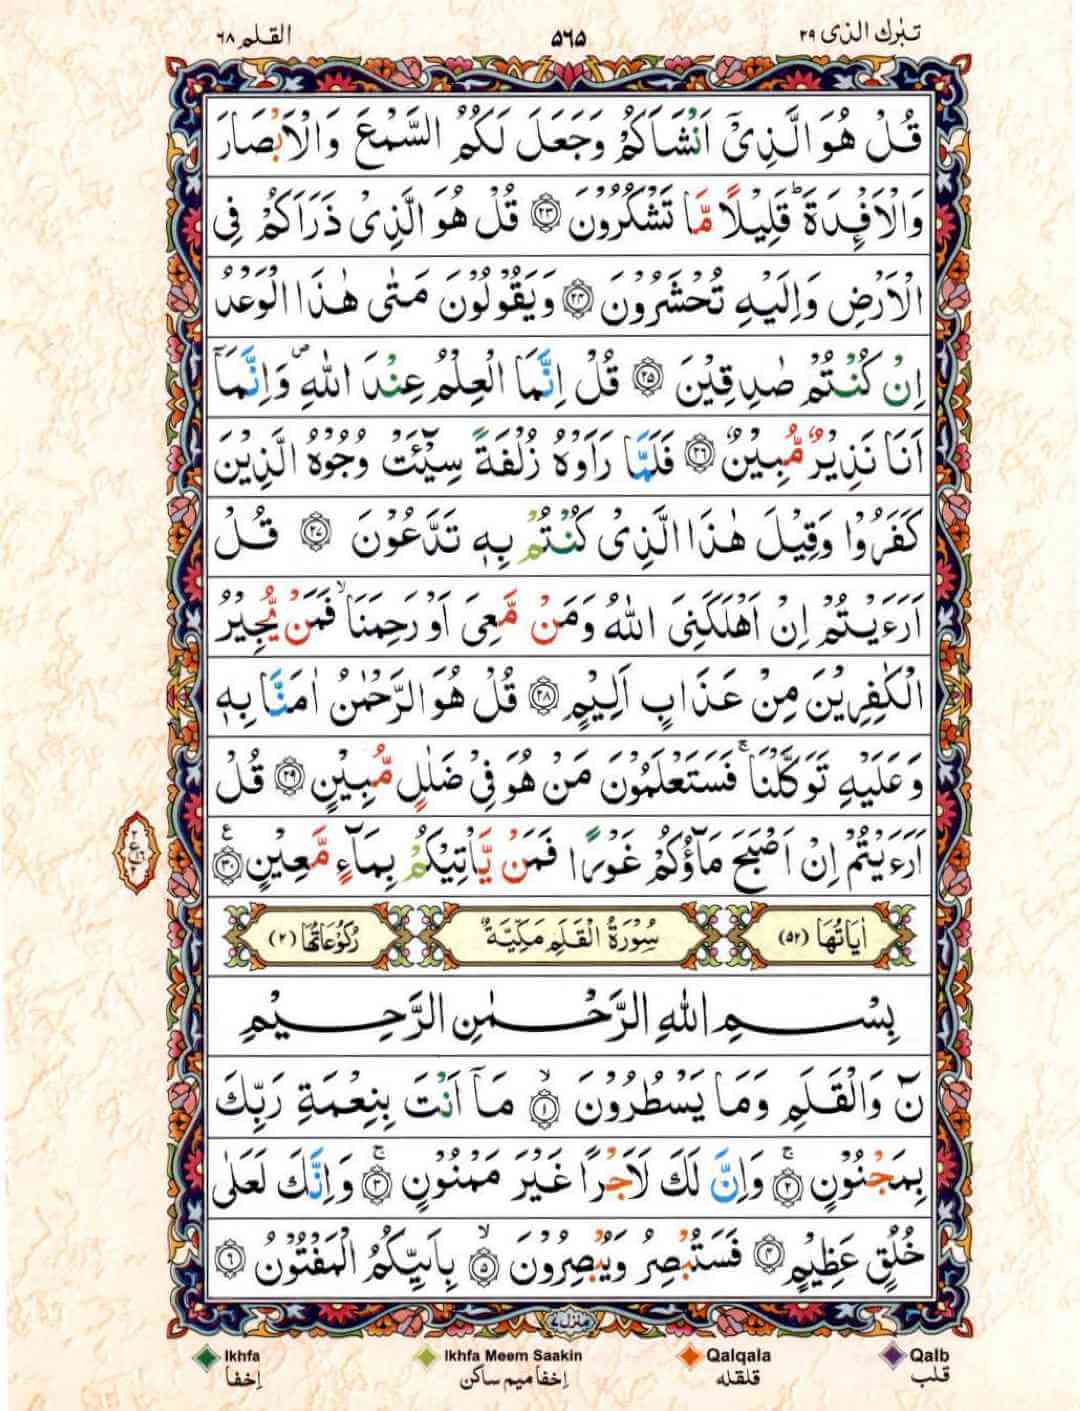 تبٰرك الذی ۲۹ ۵۶۵ القلم ۶۸
قُلْ هُوَ الَّذِیْۤ اَنْشَاَكُمْ وَجَعَلَ لَكُمُ السَّمْعَ وَالْاَبْصَارَ
وَالْاَفْـِٕدَةَ ؕ قَلِیْلًا مَّا تَشْكُرُوْنَ ۝۲۳ قُلْ هُوَ الَّذِیْ ذَرَاَكُمْ فِی
الْاَرْضِ وَاِلَیْهِ تُحْشَرُوْنَ ۝۲۴ وَیَقُوْلُوْنَ مَتٰی هٰذَا الْوَعْدُ
اِنْ كُنْتُمْ صٰدِقِیْنَ ۝۲۵ قُلْ اِنَّمَا الْعِلْمُ عِنْدَ اللّٰهِ ۪ وَاِنَّمَاۤ
اَنَا نَذِیْرٌ مُّبِیْنٌ ۝۲۶ فَلَمَّا رَاَوْهُ زُلْفَةً سِیْٓـَٔتْ وُجُوْهُ الَّذِیْنَ
كَفَرُوْا وَقِیْلَ هٰذَا الَّذِیْ كُنْتُمْ بِهٖ تَدَّعُوْنَ ۝۲۷ قُلْ
اَرَءَیْتُمْ اِنْ اَهْلَكَنِیَ اللّٰهُ وَمَنْ مَّعِیَ اَوْ رَحِمَنَا ۙ فَمَنْ یُّجِیْرُ
الْكٰفِرِیْنَ مِنْ عَذَابٍ اَلِیْمٍ ۝۲۸ قُلْ هُوَ الرَّحْمٰنُ اٰمَنَّا بِهٖ
وَعَلَیْهِ تَوَكَّلْنَا ۚ فَسَتَعْلَمُوْنَ مَنْ هُوَ فِیْ ضَلٰلٍ مُّبِیْنٍ ۝۲۹ قُلْ
اَرَءَیْتُمْ اِنْ اَصْبَحَ مَآؤُكُمْ غَوْرًا فَمَنْ یَّاْتِیْكُمْ بِمَآءٍ مَّعِیْنٍ ۝۳۰ ع
اٰیَاتُهَا (۵۲) سُوْرَةُ الْقَلَمِ مَكِّیَّةٌ رُكُوْعَاتُهَا (۲)
بِسْمِ اللّٰهِ الرَّحْمٰنِ الرَّحِیْمِ
نٓ وَالْقَلَمِ وَمَا یَسْطُرُوْنَ ۝۱ۙ مَاۤ اَنْتَ بِنِعْمَةِ رَبِّكَ
بِمَجْنُوْنٍ ۝۲ۚ وَاِنَّ لَكَ لَاَجْرًا غَیْرَ مَمْنُوْنٍ ۝۳ۚ وَاِنَّكَ لَعَلٰی
خُلُقٍ عَظِیْمٍ ۝۴ فَسَتُبْصِرُ وَیُبْصِرُوْنَ ۝۵ۙ بِاَىیِّكُمُ الْمَفْتُوْنُ ۝۶
منزل ۷
Ikhfa Ikhfa Meem Saakin Qalqala Qalb
اِخفا اِخفا میم ساکن قلقله قلب